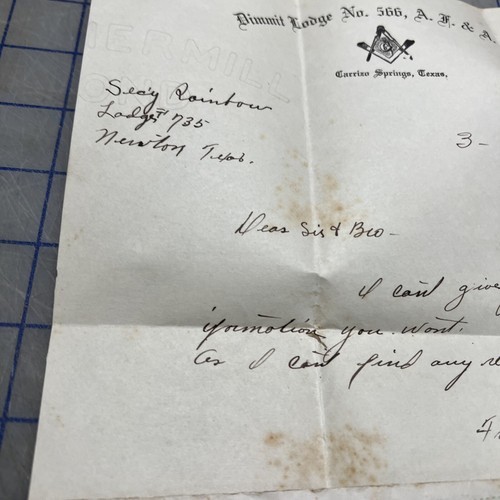 Dimmit Lodge No. 566, A. F. & A.
Carrizo Springs, Texas.
HAMMERMILL
BOND
Sec'y Rainbow
Lodge # 735
Newton Texas.
3-
Dear Sir & Bro-
I can't give
information you want.
as I can't find any re